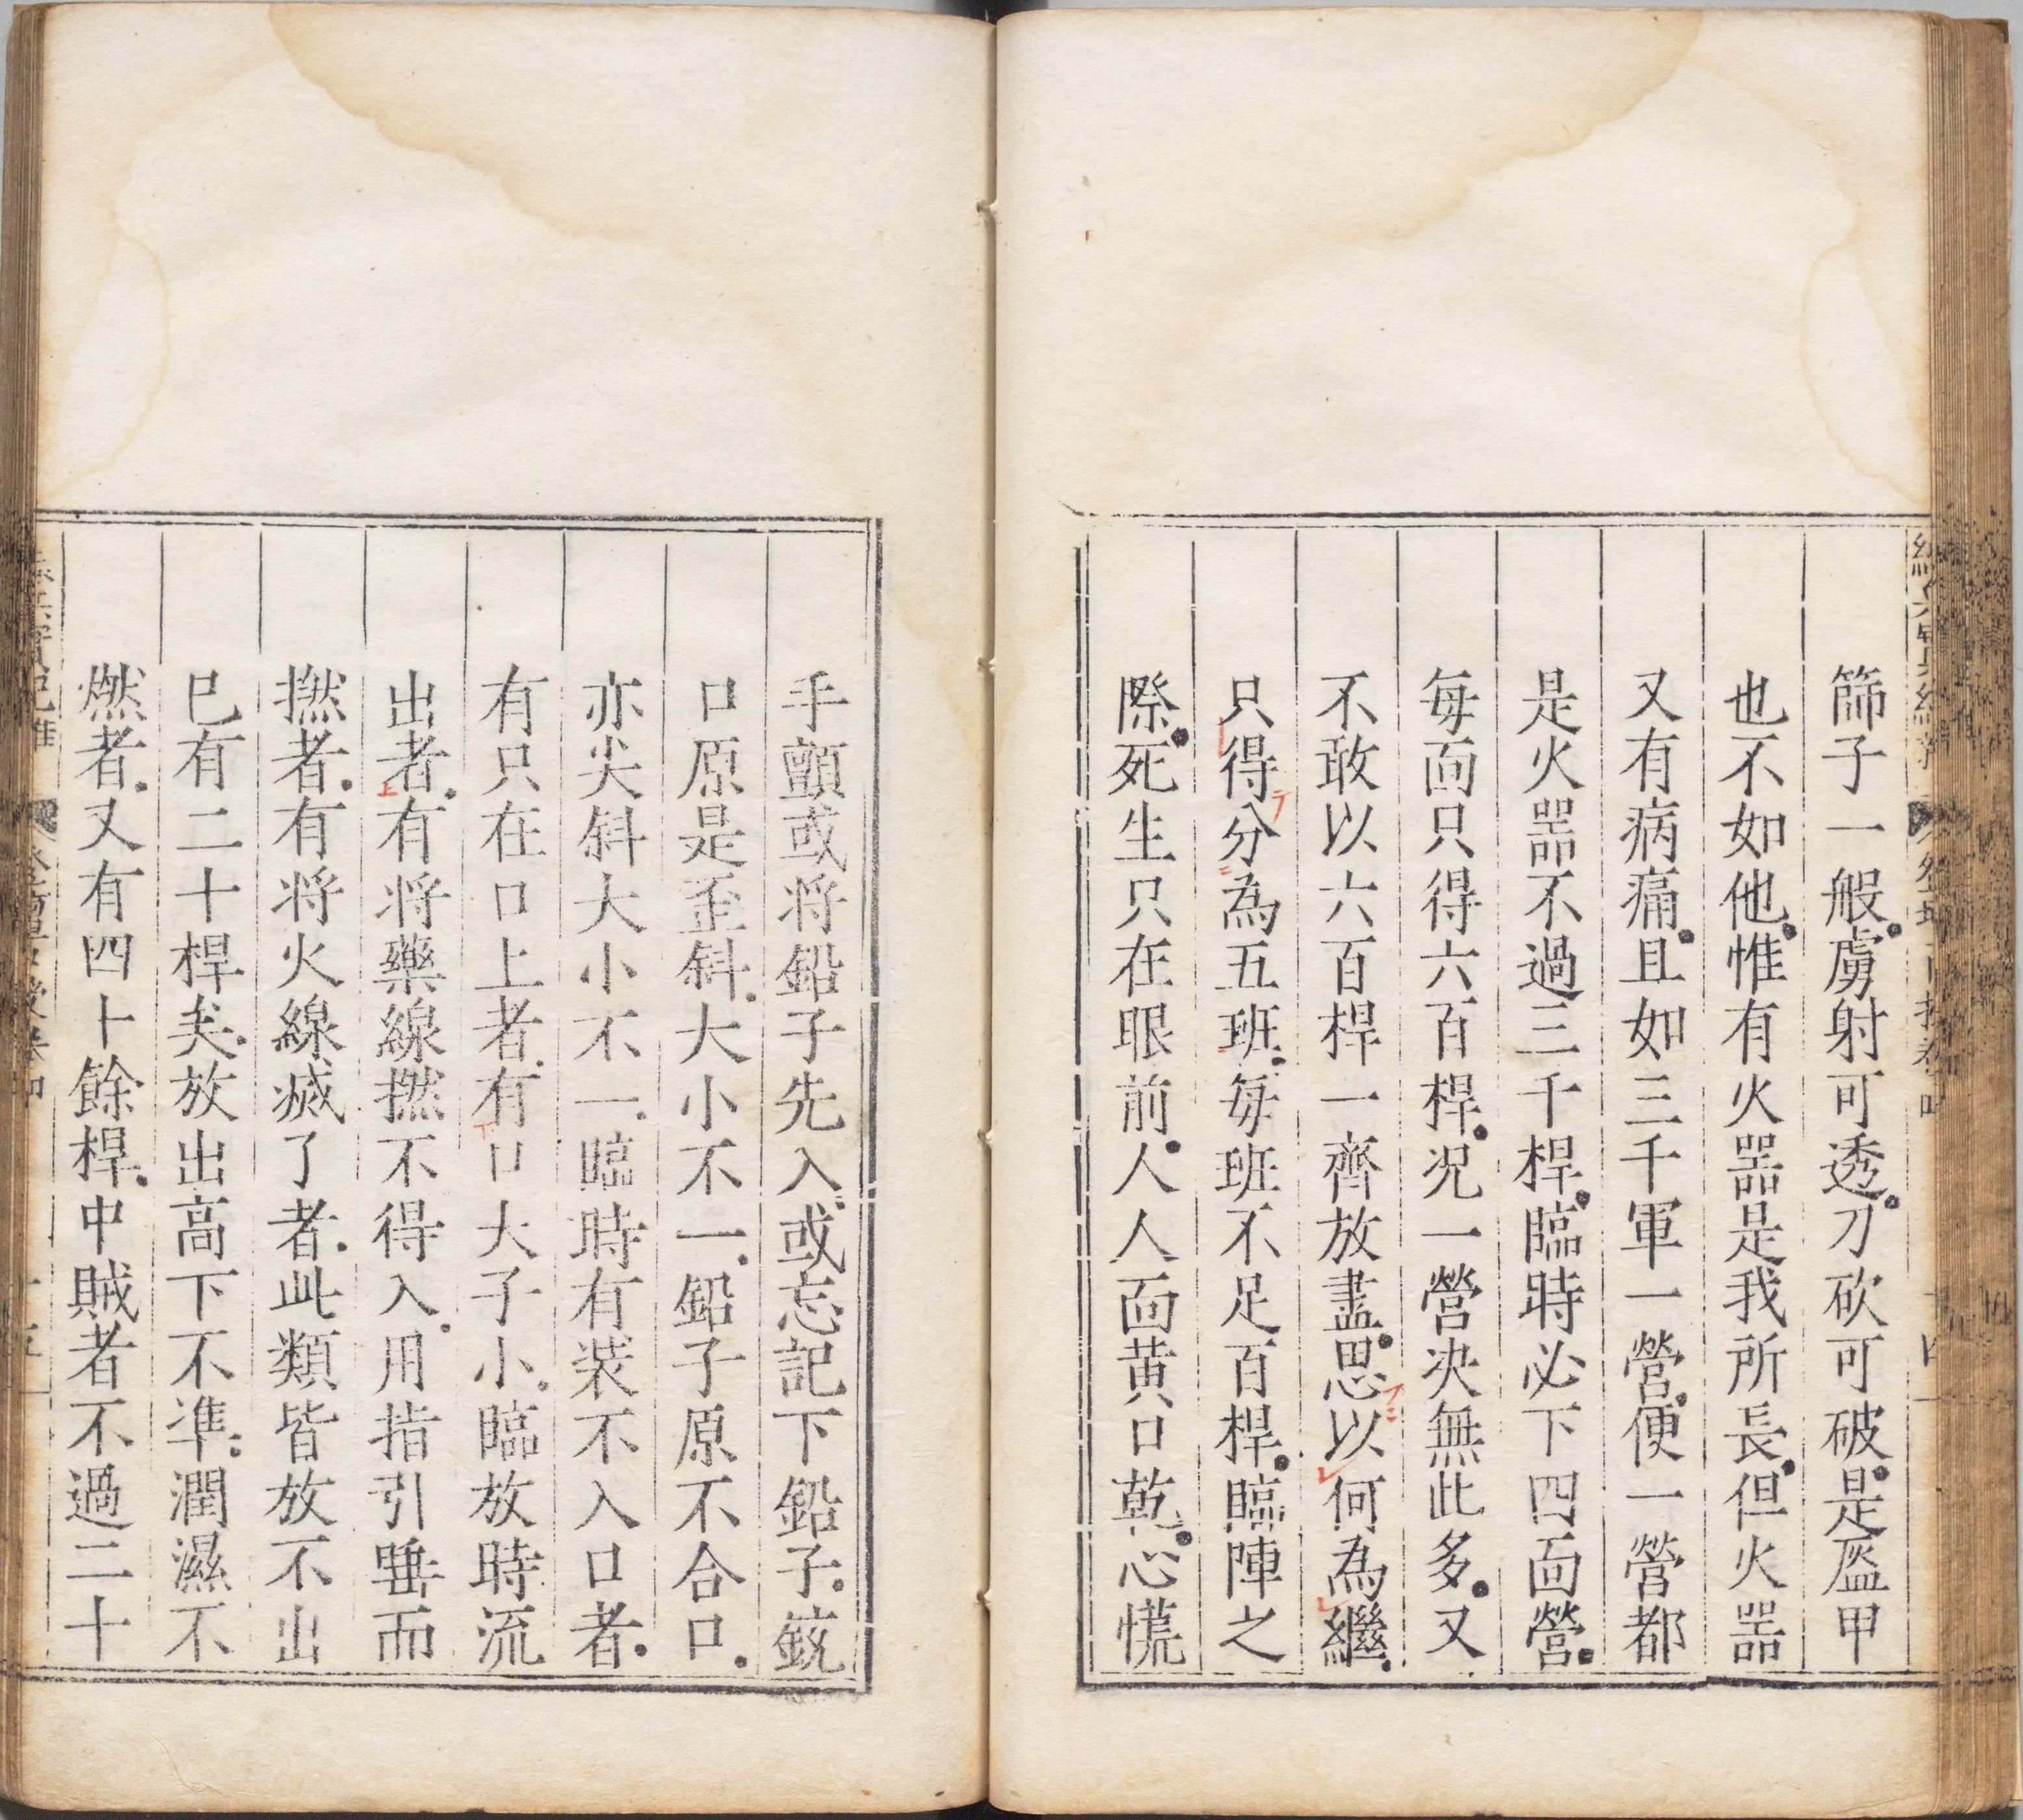 篩子一般虜射可透刀砍可破是盔甲
也不如他惟有火噐是我所長但火噐
又有病痛且如三千軍一營便一營都
是火噐不過三千桿臨時必下四面營
每面只得六百桿况一營决無此多又
不敢以六百桿一齊放盡思以何為繼
只得分為五班每班不足百桿臨陣之
際死生只在眼前人人面黄口乾心慌
手顫或将鉛子先入或忘記下鉛子銃
口原是歪斜大小不一鉛子原不合口
亦尖斜大小不一臨時有裝不入口者
有只在口上者有口大子小臨放時流
出者有将藥線撚不得入用指引唾而
撚者有将火線滅了者此類皆放不出
巳有二十桿矣放出高下不準潤濕不
燃者又有四十餘桿中賊者不過二十